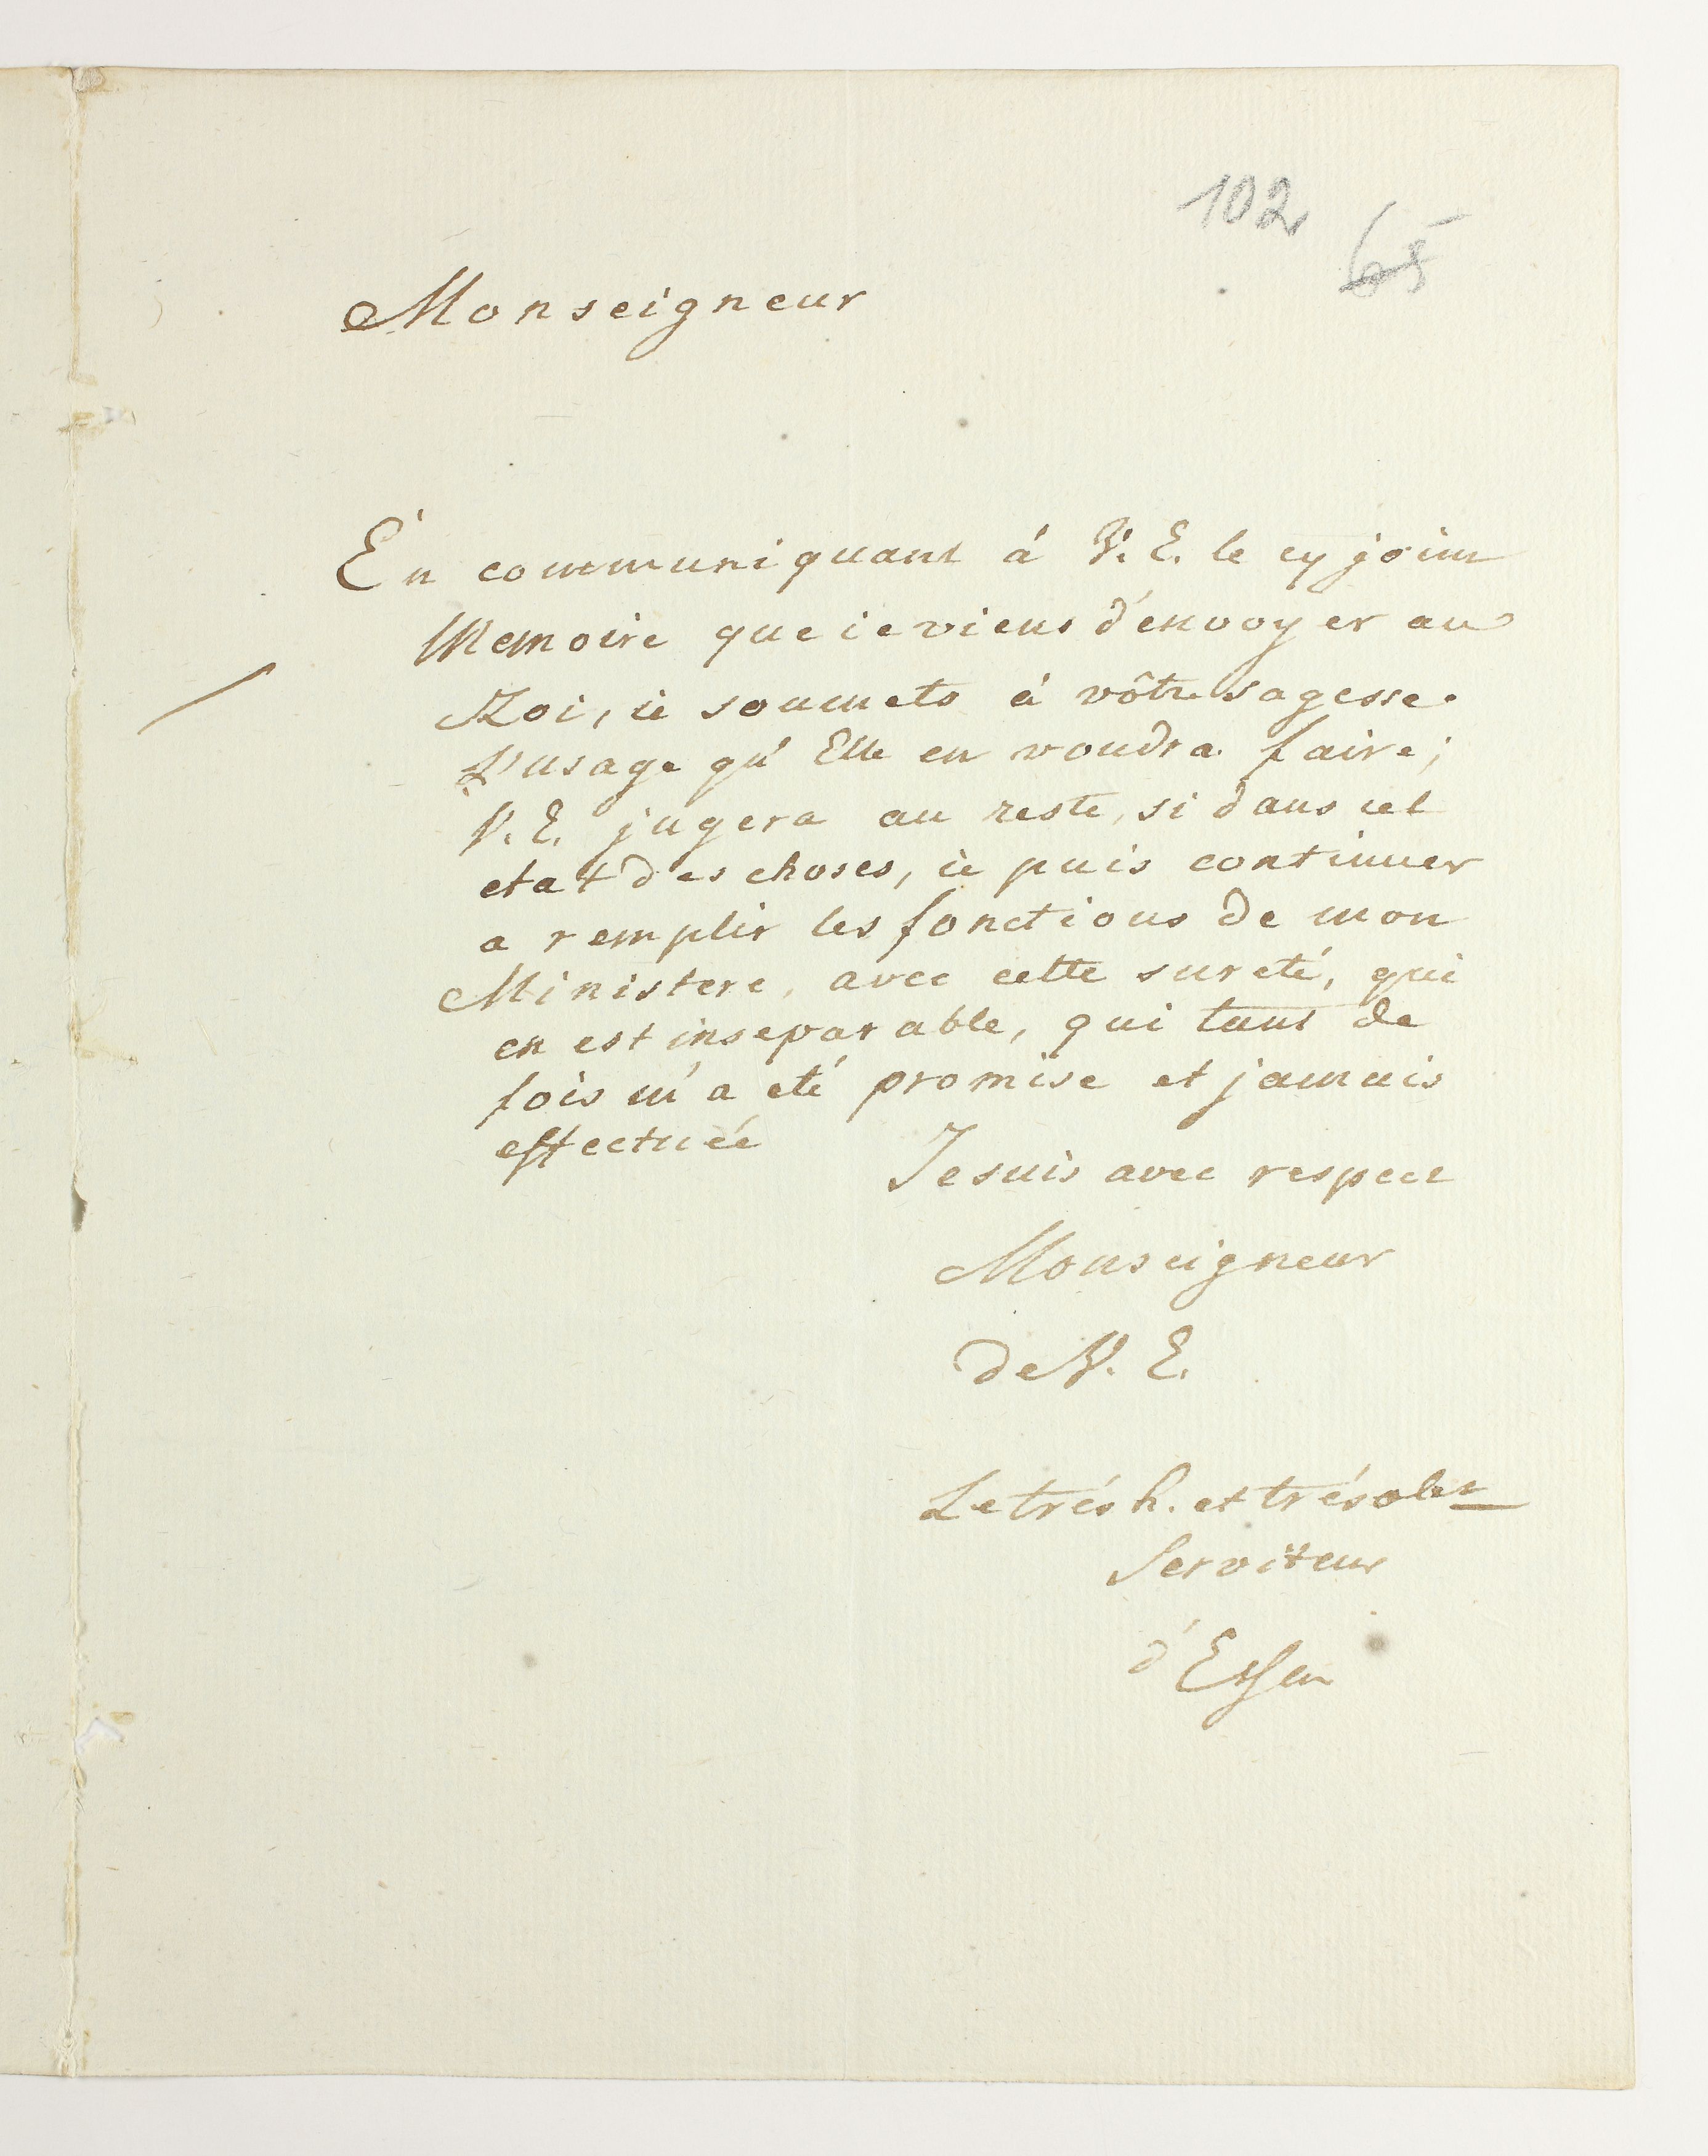 102
65
Monseigneur
En communiquant á V. E. le cy joint
Memoire que ie viens d'envoyer au
Roi, ie soumets á vôtre sagesse
L'usage qu'Elle en voudra faire;
V. E. jugera au reste, si dans cet
etat des choses, ie puis continuer
a remplir les fonctions de mon
Ministere, avec cette sureté, qui
en est inseparable, qui tant de
fois m'a eté promise et jamais
effectuée
Je suis avec respect
Monseigneur
de V. E.
Le trés h. et trés obt
Serviteur
d'Essen